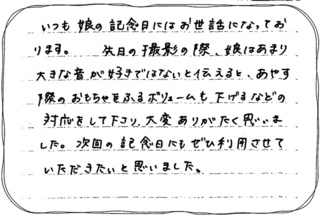 いつも娘の記念日にはお世話になってお
ります。 先日の撮影の際、娘はあまり
大きな音が好きではないと伝えると、あやす
際のおもちゃをふるボリュームも下げるなどの
対応をして下さり、大変ありがたく思いま
した。次回の記念日にもぜひ利用させて
いただきたいと思いました。